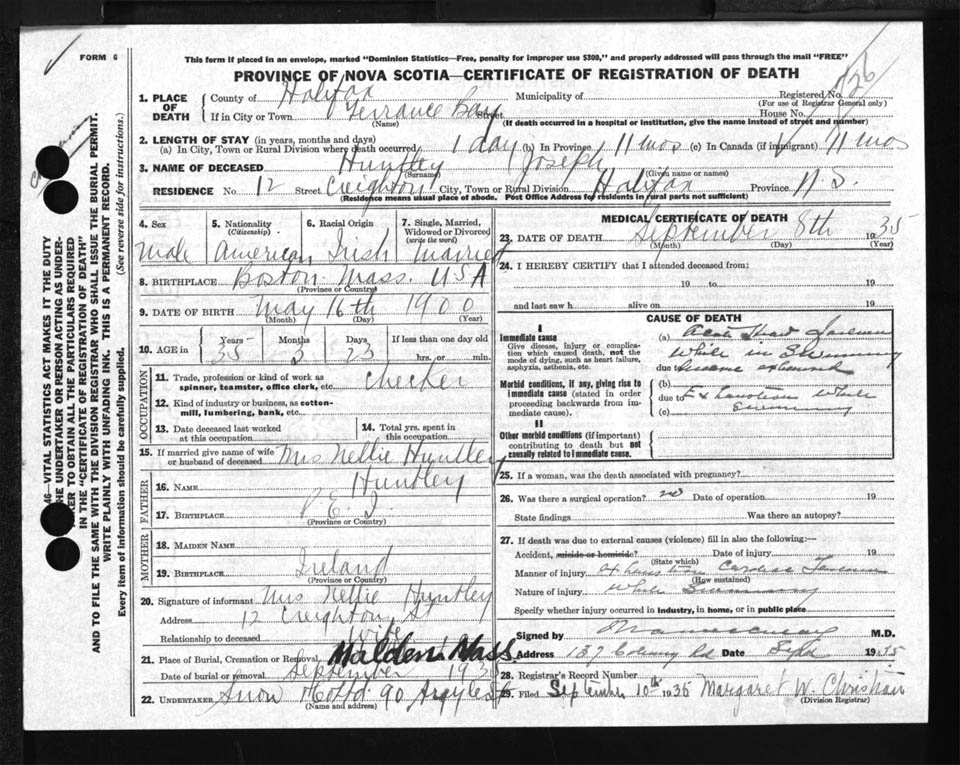 FORM 6
This form if placed in an envelope, marked "Dominion Statistics—Free, penalty for improper use $300," and properly addressed will pass through the mail "FREE"
PROVINCE OF NOVA SCOTIA—CERTIFICATE OF REGISTRATION OF DEATH
1. PLACE OF DEATH
County of Halifax Municipality of Registered No.
(For use of Registrar General only)
If in City or Town Terrance Bay Street House No.
(Name) (If death occurred in a hospital or institution, give the name instead of street and number)
2. LENGTH OF STAY (in years, months and days)
(a) In City, Town or Rural Division where death occurred 1 day (b) In Province 11 mos (c) In Canada (if immigrant) 11 mos
3. NAME OF DECEASED Huntley Joseph
(Surname) (Given name or names)
RESIDENCE No. 12 Street Creighton City, Town or Rural Division Halifax Province N.S.
(Residence means usual place of abode. Post Office Address for residents in rural parts not sufficient)
4. Sex Male
5. Nationality (Citizenship) American
6. Racial Origin Irish
7. Single, Married, Widowed or Divorced (write the word) Married
8. BIRTHPLACE Boston Mass. USA
(Province or Country)
9. DATE OF BIRTH May 16th 1900
(Month) (Day) (Year)
10. AGE in Years 35 Months 3 Days 23 If less than one day old hrs. or min.
OCCUPATION
11. Trade, profession or kind of work as spinner, teamster, office clerk, etc. checker
12. Kind of industry or business, as cotton-mill, lumbering, bank, etc.
13. Date deceased last worked at this occupation
14. Total yrs. spent in this occupation
15. If married give name of wife or husband of deceased Mrs Nellie Huntley
FATHER
16. NAME Huntley
17. BIRTHPLACE P.E.I.
(Province or Country)
MOTHER
18. MAIDEN NAME
19. BIRTHPLACE Ireland
(Province or Country)
20. Signature of informant Mrs Nellie Huntley
Address 12 Creighton St
Relationship to deceased wife
21. Place of Burial, Cremation or Removal Malden Mass.
Date of burial or removal September 1935
22. UNDERTAKER Snow & Co Ltd. 90 Argyle St
(Name and address)
MEDICAL CERTIFICATE OF DEATH
23. DATE OF DEATH September 8th 1935
(Month) (Day) (Year)
24. I HEREBY CERTIFY that I attended deceased from:
19 to 19
and last saw h alive on 19
CAUSE OF DEATH
I
Immediate cause
Give disease, injury or complication which caused death, not the mode of dying, such as heart failure, asphyxia, asthenia, etc.
(a)
while in swimming
due
Morbid conditions, if any, giving rise to immediate cause (stated in order proceeding backwards from immediate cause).
(b)
due to Exhaustion while
(c) swimming
II
Other morbid conditions (if important) contributing to death but not causally related to immediate cause.
25. If a woman, was the death associated with pregnancy?
26. Was there a surgical operation? no Date of operation 19
State findings Was there an autopsy?
27. If death was due to external causes (violence) fill in also the following:—
Accident, suicide or homicide? Date of injury 19
(State which)
Manner of injury Exhaustion Cardiac
(How sustained)
Nature of injury While swimming
Specify whether injury occurred in industry, in home, or in public place
Signed by M.D.
Address 137 Date Sept 1935
28. Registrar's Record Number
29. Filed September 10th 1935 Margaret W. Christian
(Division Registrar)
46—VITAL STATISTICS ACT MAKES IT THE DUTY
THE UNDERTAKER OR PERSON ACTING AS UNDER-
TAKER TO OBTAIN ALL THE PARTICULARS REQUIRED
IN THE "CERTIFICATE OF REGISTRATION OF DEATH"
AND TO FILE THE SAME WITH THE DIVISION REGISTRAR WHO SHALL ISSUE THE BURIAL PERMIT.
WRITE PLAINLY WITH UNFADING INK. THIS IS A PERMANENT RECORD.
Every item of information should be carefully supplied. (See reverse side for instructions.)